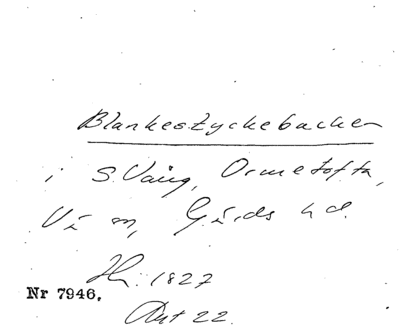 Blankestyckebacken
i S. Vång, Ormetofta,
Vä sn, Gärds hd.
Hr: 1827
Nr 7946.
Akt 22.